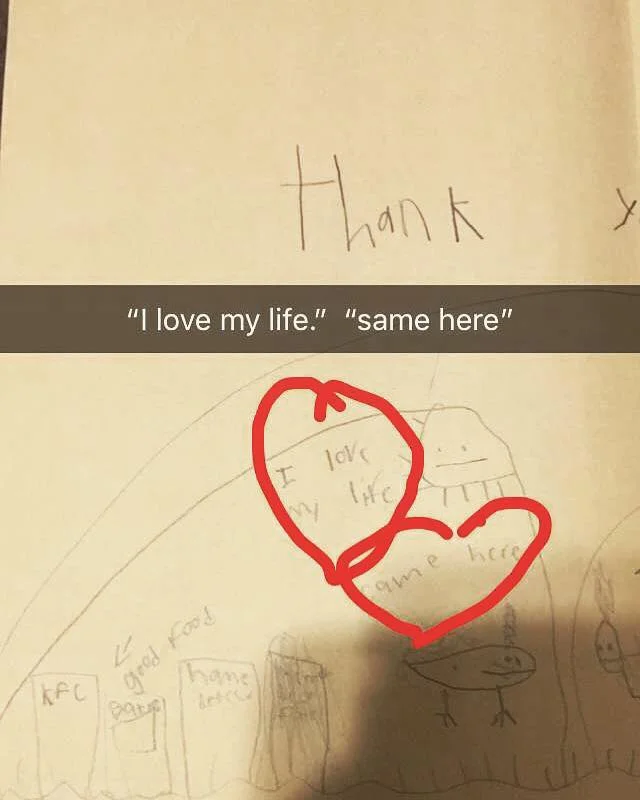 thank
"I love my life." "same here"
I love
my life
same here
good food
KFC
home